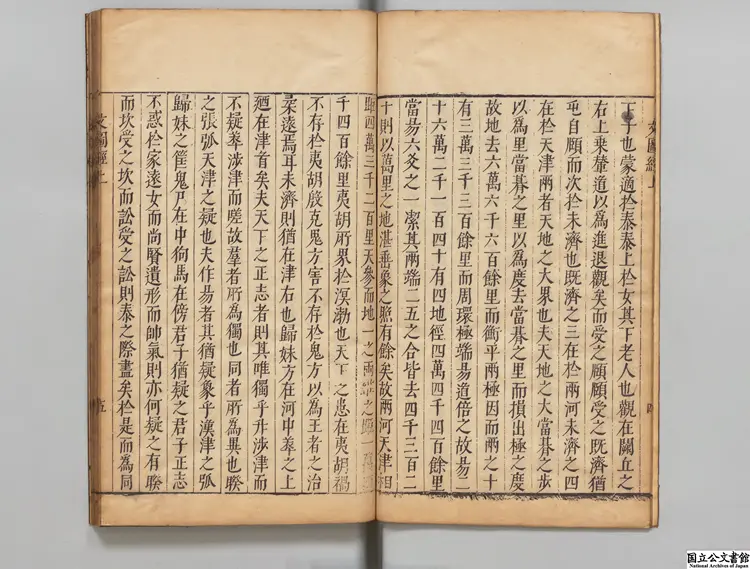 丁子也蒙適扵泰泰上扵女其下老人也觀在闕丘之
右上乗犛道以為進退觀矣而受之頤頤受之既濟猶
屯自頤而次扵未濟也既濟之三在扵兩河未濟之四
在扵天津兩者天地之大界也夫天地之大當暮之歩
以為里當暮之里以為度去當暮之里而損出極之度
故地去六萬六千六百餘里而衡平兩極因而兩之十
有三萬三千三百餘里而周環極端昜道倍之故昜二
十六萬二千一百四十有四地徑四萬四千四百餘里
當昜六爻之一潔其兩端二五之合皆去四千三百二
十則以萬里之地湛垂象之照有餘矣故兩河天津相
距四萬三千二百里天參而地一之兩端之
千四百餘里夷胡所累扵溟渤也天下之患在夷胡禍
不存扵夷胡殷克鬼方害不存扵鬼方以為王者之治
柔遠焉耳未濟則猶在津右也歸妹方在河中羣之上
廼在津首矣夫天下之正志者則其唯獨乎升渉津而
不疑萃渉津而嗟故羣者所為獨也同者所為異也睽
之張弧天津之疑也夫作昜者其猶疑象乎漢津之弧
歸妹之筐鬼尸在中狗馬在傍君子猶疑之君子正志
不惑扵家逺女而尚賢遺形而帥氣則亦何疑之有睽
而坎受之坎而訟受之訟則泰之際晝矣扵是而為同
文圖經上
四
五
国立公文書館
National Archives of Japan